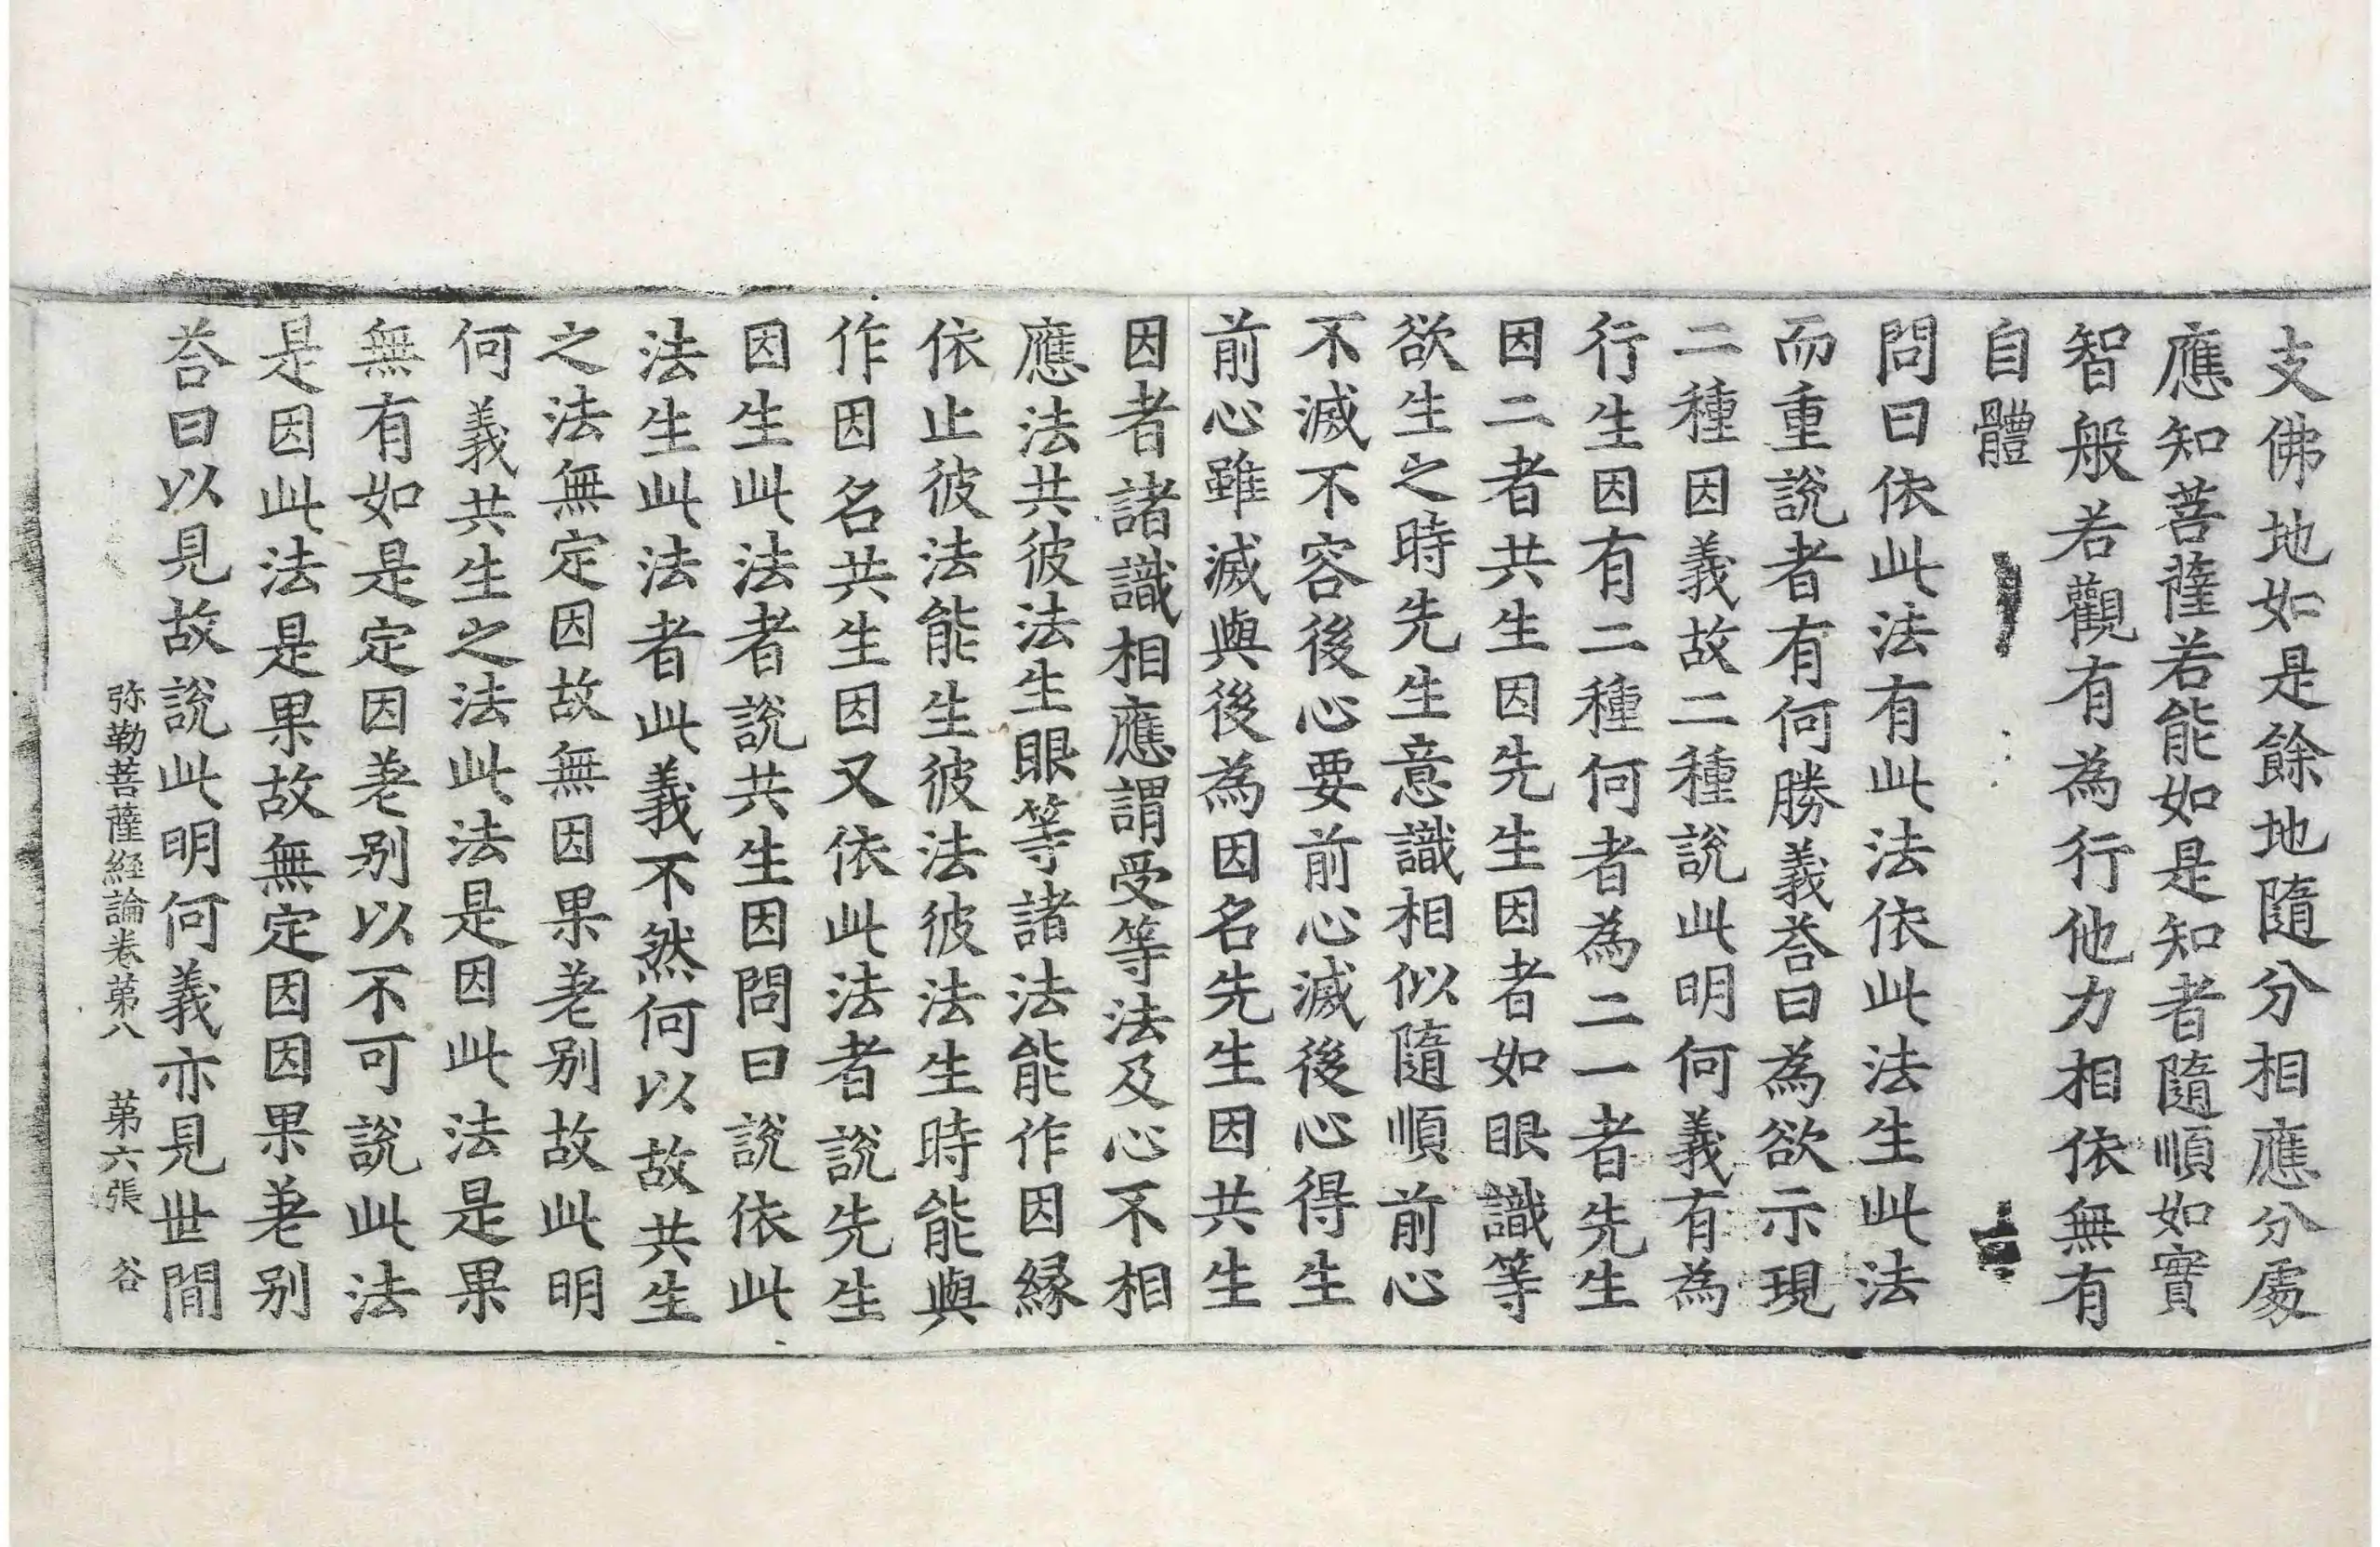 支佛地如是餘地隨分相應分處
應知菩薩若能如是知者隨順如實
智般若觀有為行他力相依無有
自體
問曰依此法有此法依此法生此法
而重說者有何勝義荅曰為欲示現
二種因義故二種說此明何義有為
行生因有二種何者為二一者先生
因二者共生因先生因者如眼識等
欲生之時先生意識相似隨順前心
不滅不容後心要前心滅後心得生
前心雖滅與後為因名先生因共生
因者諸識相應謂受等法及心不相
應法共彼法生眼等諸法能作因緣
依止彼法能生彼法彼法生時能與
作因名共生因又依此法者說先生
因生此法者說共生因問曰說依此
法生此法者此義不然何以故共生
之法無定因故無因果差别故此明
何義共生之法此法是因此法是果
無有如是定因差别以不可說此法
是因此法是果故無定因因果差别
荅曰以見故說此明何義亦見世間
弥勒菩薩經論卷第八 第六張 谷